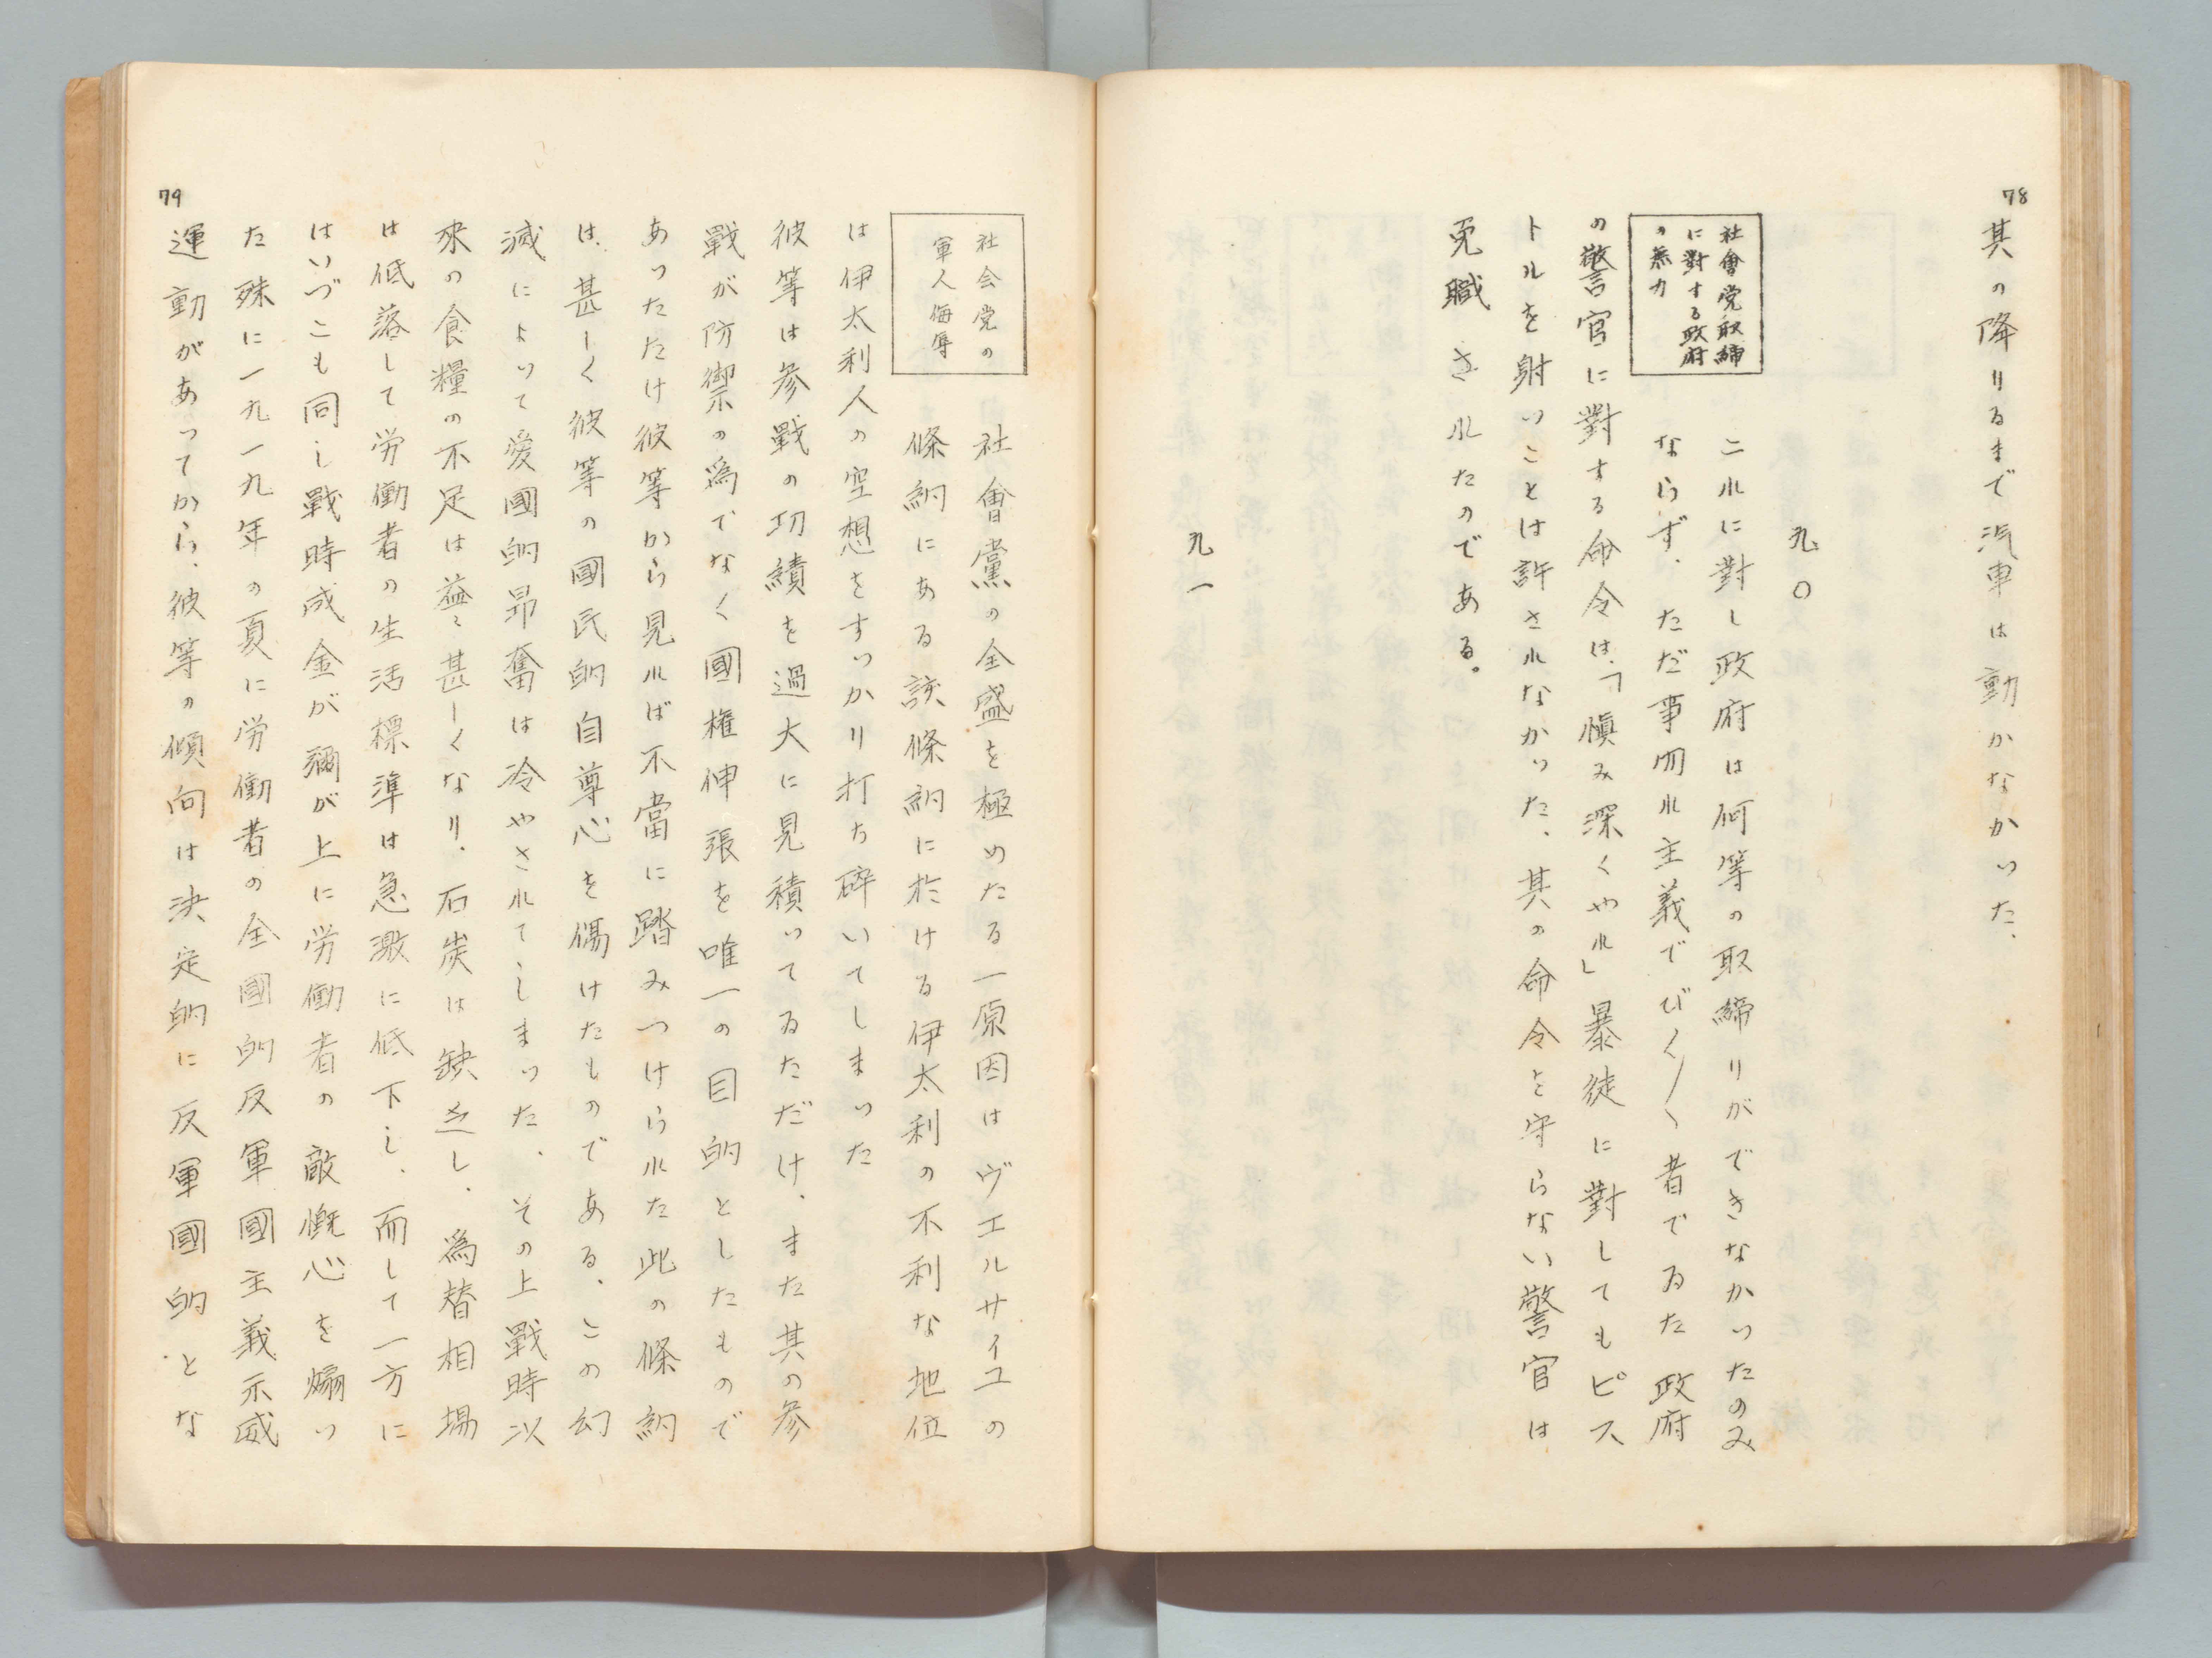 78
其の降りるまで汽車は動かなかつた、
九〇
社會党取締
に對する政府
の無力
これに對し政府は何等の取締りができなかつたのみ
ならず、ただ事勿れ主義でびく〳〵者でゐた政府
の警官に對する命令は、「愼み深くやれ」暴徒に對してもピス
トルを射つことは許されなかつた、其の命令を守らない警官は
免職されたのである。
九一
79
社会党の
軍人侮辱
社會黨の全盛を極めたる一原因はヴエルサイユの
條約にある該條約に於ける伊太利の不利な地位
は伊太利人の空想をすつかり打ち碎いてしまつた
彼等は參戰の功績を過大に見積つてゐただけ、また其の參
戰が防禦の爲でなく國権伸張を唯一の目的としたもので
あつただけ彼等から見れば不當に踏みつけられた此の條約
は、甚しく彼等の國民的自尊心を傷けたものである、この幻
滅によつて愛國的昻奮は冷やされてしまつた、その上戰時以
來の食糧の不足は益〻甚しくなり、石炭は缺乏し、爲替相場
は低落して労働者の生活標準は急激に低下し、而して一方に
はいづこも同じ戰時成金が彌が上に労働者の敵愾心を煽つ
た殊に一九一九年の夏に労働者の全國的反軍國主義示威
運動があつてから、彼等の傾向は決定的に反軍國的とな